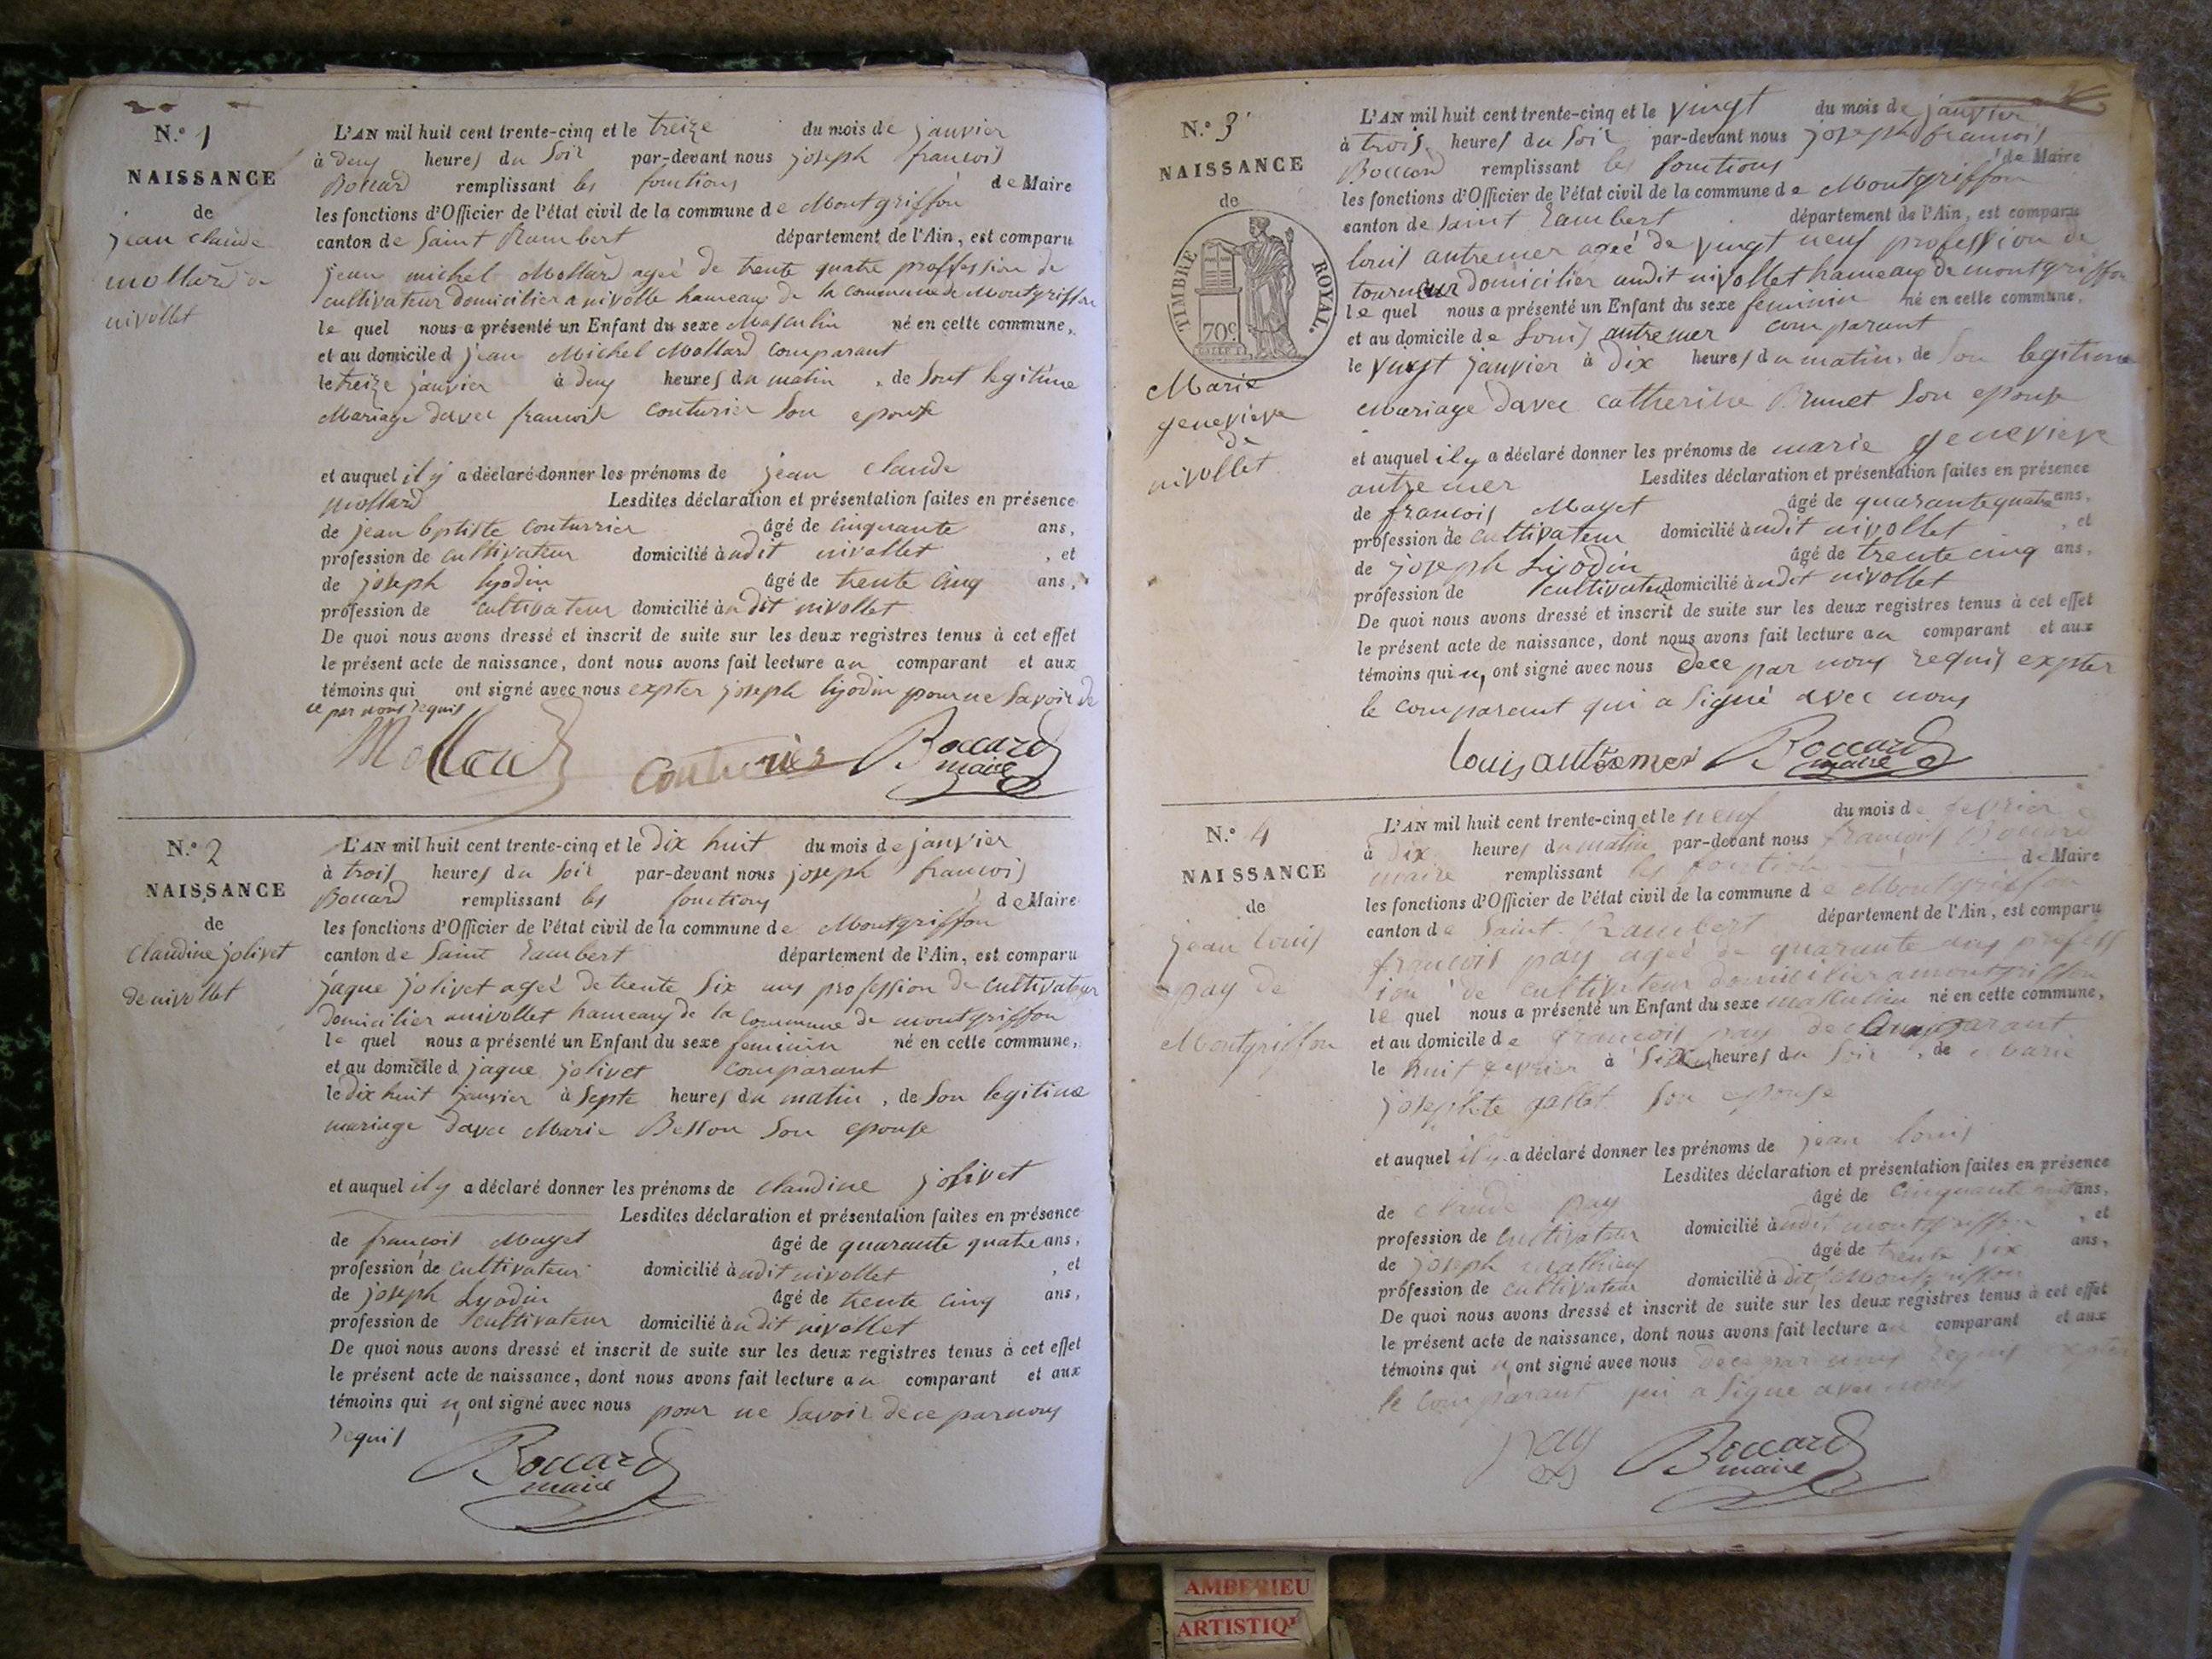 N.° 1
NAISSANCE
de
jean claude
mollard de
nivollet
L'AN mil huit cent trente-cinq et le treize du mois de janvier
à deux heures du soir par-devant nous joseph francois
Boccard remplissant les fonctions de Maire
les fonctions d'Officier de l'état civil de la commune de Montgriffon
canton de Saint Rambert département de l'Ain, est comparu
jean michel Mollard ageé de trente quatre proffession de
cultivateur domicilier a nivolle hameaux de la commune de Montgriffon
le quel nous a présenté un Enfant du sexe Masculin né en cette commune,
et au domicile d jean Michel Mollard comparant
le treize janvier à deux heures du matin, de sont legitime
Mariage davec francoise couturier son epouse
et auquel il y a déclaré donner les prénoms de jean claude
mollard Lesdites déclaration et présentation faites en présence
de jean bptiste couturrier âgé de cinquante ans,
profession de cultivateur domicilié à udit nivollet, et
de joseph lyodin âgé de trente cinq ans,
profession de cultivateur domicilié à udit nivollet
De quoi nous avons dressé et inscrit de suite sur les deux registres tenus à cet effet
le présent acte de naissance, dont nous avons fait lecture au comparant et aux
témoins qui ont signé avec nous expter joseph lyodin pour ne savoir de
ce par nous requis
Mollard Couturier Boccard
maire
N.° 2
NAISSANCE
de
claudine jolivet
de nivollet
L'AN mil huit cent trente-cinq et le dix huit du mois de janvier
à trois heures du soir par-devant nous joseph francois
Boccard remplissant les fonctions de Maire
les fonctions d'Officier de l'état civil de la commune de Montgriffon
canton de Saint Rambert département de l'Ain, est comparu
jaque jolivet ageé de trente six ans profession de cultivateur
domicilier anivollet hameaux de la commune de montgriffon
le quel nous a présenté un Enfant du sexe feminin né en cette commune,
et au domicile d jaque jolivet comparant
le dix huit janvier à septe heures du matin, de son legitime
mariage davec Marie Besson son epouse
et auquel il y a déclaré donner les prénoms de claudine jolivet
Lesdites déclaration et présentation faites en présence
de francois Mayet âgé de quarante quatre ans,
profession de cultivateur domicilié à udit nivollet, et
de joseph Lyodin âgé de trente cinq ans,
profession de cultivateur domicilié à udit nivollet
De quoi nous avons dressé et inscrit de suite sur les deux registres tenus à cet effet
le présent acte de naissance, dont nous avons fait lecture au comparant et aux
témoins qui n ont signé avec nous pour ne savoir de ce par nous
requis
Boccard
maire
N.° 3
NAISSANCE
de
TIMBRE ROYAL.
70c
Marie
genevieve
de
nivollet
L'AN mil huit cent trente-cinq et le vingt du mois de janvier
à trois heures du soir par-devant nous joseph francois
Boccard remplissant les fonctions de Maire
les fonctions d'Officier de l'état civil de la commune de Montgriffon
canton de Saint Rambert département de l'Ain, est comparu
louis autremer ageé de vingt neuf profession de
tourneur domicilier audit nivollet hameaux de montgriffon
le quel nous a présenté un Enfant du sexe feminin né en cette commune,
et au domicile de Louis autremer comparant
le vingt janvier à dix heures du matin, de son legitime
Mariage davec catherine Brunet son epouse
et auquel il y a déclaré donner les prénoms de marie genevieve
autremer Lesdites déclaration et présentation faites en présence
de francois Mayet âgé de quarante quatre ans,
profession de cultivateur domicilié à udit nivollet, et
de joseph Lyodin âgé de trente cinq ans,
profession de cultivateur domicilié à udit nivollet
De quoi nous avons dressé et inscrit de suite sur les deux registres tenus à cet effet
le présent acte de naissance, dont nous avons fait lecture au comparant et aux
témoins qui n ont signé avec nous dece par nous requis expter
le comparant qui a signé avec nous
Louis autremer Boccard
maire
N.° 4
NAISSANCE
de
jean louis
pay de
Montgriffon
L'AN mil huit cent trente-cinq et le neuf du mois de fevrier
à dix heures du matin par-devant nous francois Boccard
maire remplissant les fonction de Maire
les fonctions d'Officier de l'état civil de la commune de Montgriffon
canton de Saint Rambert département de l'Ain, est comparu
francois pay ageé de quarante ans profess
ion de cultivateur domicilier amontgriffon
le quel nous a présenté un Enfant du sexe masculin né en cette commune,
et au domicile de francois pay comparant
le huit fevrier à six heures du soir, de Marie
josephte gallet son epouse
et auquel il y a déclaré donner les prénoms de jean louis
Lesdites déclaration et présentation faites en présence
de claude pay âgé de cinquante ans,
profession de cultivateur domicilié à udit montgriffon, et
de joseph mathieu âgé de trente six ans,
profession de cultivateur domicilié à dit Montgriffon
De quoi nous avons dressé et inscrit de suite sur les deux registres tenus à cet effet
le présent acte de naissance, dont nous avons fait lecture au comparant et aux
témoins qui n ont signé avec nous dece par nous requis expter
le comparant qui a signé avec nous
pay Boccard
maire
AMBERIEU
ARTISTIQU